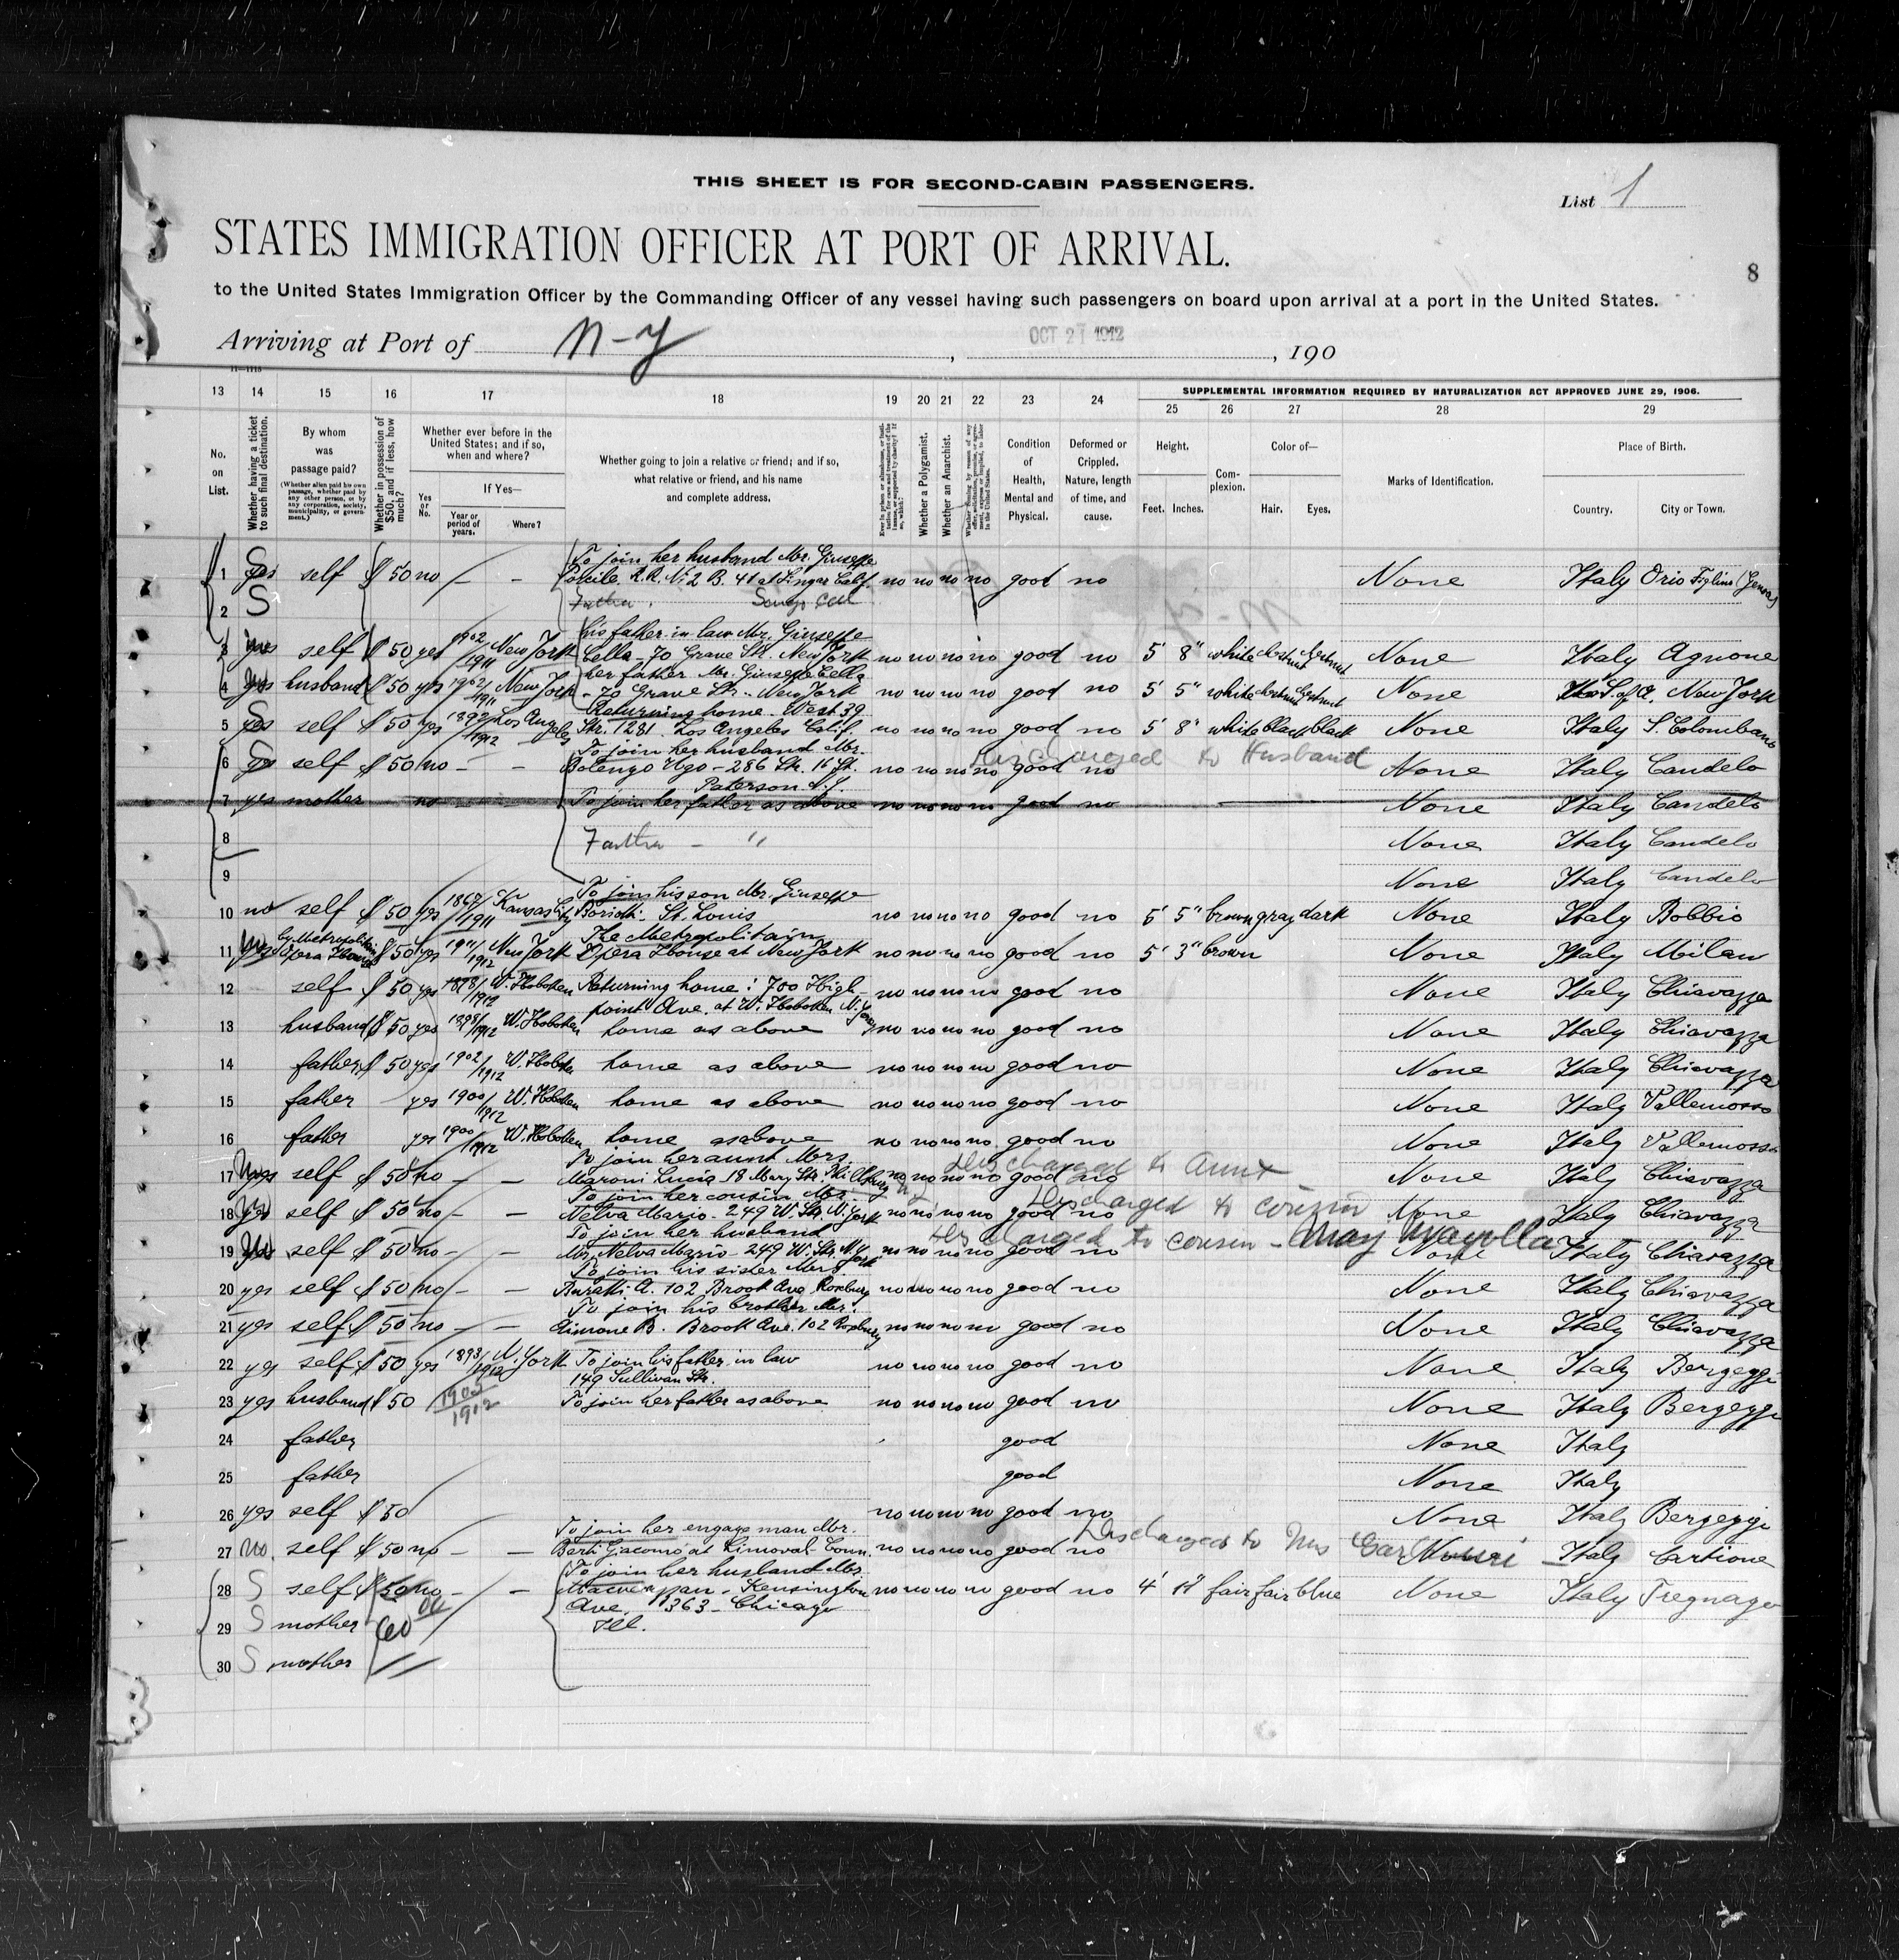 THIS SHEET IS FOR SECOND-CABIN PASSENGERS.
List 1
STATES IMMIGRATION OFFICER AT PORT OF ARRIVAL.
8
to the United States Immigration Officer by the Commanding Officer of any vessel having such passengers on board upon arrival at a port in the United States.
Arriving at Port of N-Y, OCT 21 1912, 190
11—1115
13 14 15 16 17 18 19 20 21 22 23 24 SUPPLEMENTAL INFORMATION REQUIRED BY NATURALIZATION ACT APPROVED JUNE 29, 1906.
25 26 27 28 29
No. on List.
Whether having a ticket to such final destination.
By whom was passage paid?
(Whether alien paid his own passage, whether paid by any other person, or by any corporation, society, municipality, or government.)
Whether in possession of $50, and if less, how much?
Whether ever before in the United States; and if so, when and where?
Yes or No.
If Yes—
Year or period of years.
Where?
Whether going to join a relative or friend; and if so, what relative or friend, and his name and complete address.
Whether a Polygamist.
Whether an Anarchist.
Condition of Health, Mental and Physical.
Deformed or Crippled. Nature, length of time, and cause.
Height.
Feet. Inches.
Complexion.
Color of—
Hair. Eyes.
Marks of Identification.
Place of Birth.
Country. City or Town.
To join her husband Mr. Giuseppe
1 S yes self $ 50 no — R.R. No 2 B. 41 at Calif. no no no no good no None Italy Orio
2 S Father
his father in law Mr. Giuseppe
3 yes self $ 50 yes 1902/1911 New York Cella - 70 Grave Str. New York no no no no good no 5' 8" white chestnut chestnut None Italy Agnone
her father Mr. Giuseppe Cella
4 yes husband $ 50 yes 1902/1911 New York - 70 Grave Str. - New York no no no no good no 5' 5" white chestnut chestnut None U.S. of A. New York
Returning home. West 39
5 S yes self $ 50 yes 1892/1912 Los Angeles Str. 1281. Los Angeles Calif. no no no no good no 5' 8" white black black None Italy S. Colombano
To join her husband Mr.
6 S yes self $ 50 no — — Botengo Ugo - 286 Str. 16 St. no no no no good no Discharged to Husband None Italy Candelo
Paterson N.J.
7 yes mother no To join her father as above no no no no good no None Italy Candelo
8 Father — " None Italy Candelo
9 None Italy Candelo
To join his son Mr. Giuseppe
10 no self $ 50 yes 1911 Kansas City St. Louis no no no no good no 5' 5" brown gray dark None Italy Bobbio
by Metropolitan The Metropolitain
11 yes Opera House $ 50 yes 1911/1912 New York Opera House at New York no no no no good no 5' 3" brown None Italy Milan
12 self $ 50 yes 1898/1912 W. Hoboken Returning home: 700 High- no no no no good no None Italy Chiavazza
point Ave. at W. Hoboken N. Jersey
13 husband $ 50 yes 1898/1912 W. Hoboken home as above no no no no good no None Italy Chiavazza
14 father $ 50 yes 1902/1912 W. Hoboken home as above no no no no good no None Italy Chiavazza
15 father yes 1900/1912 W. Hoboken home as above no no no no good no None Italy Vallemosso
16 father yes 1900/1912 W. Hoboken home as above no no no no good no None Italy Vallemosso
To join her aunt Mrs.
17 yes self $ 50 no — — Maroni Lucia 18 Mary Str. no no no no good no Discharged to Aunt None Italy Chiavazza
To join her cousin Mr.
18 yes self $ 50 no — — Nelva Mario - 249 W. Str. N. York no no no no good no Discharged to cousin None Italy Chiavazza
To join her husband
19 yes self $ 50 no — — Mr. Nelva Mario - 249 W. Str. N.York no no no no good no Discharged to cousin - May None Italy Chiavazza
To join his sister Mrs.
20 yes self $ 50 no — — Buratti A. 102 Brook Ave Roxbury no no no no good no None Italy Chiavazza
To join his brother Mr.
21 yes self $ 50 no — — Aimone B. Brook Ave. 102 Roxbury no no no no good no None Italy Chiavazza
22 yes self $ 50 yes 1893/1912 N. York To join his father in law no no no no good no None Italy Bergeggi
149 Sullivan Str.
23 yes husband $ 50 1905/1912 To join her father as above no no no no good no None Italy Bergeggi
24 father good None Italy
25 father good None Italy
26 yes self $ 50 no no no no good no None Italy Bergeggi
To join her engage man Mr.
27 no. self $ 50 no — — Berti Giacomo at Conn. no no no no good no Discharged to Mrs None Italy
To join her husband Mr.
28 S self $ 50 no — — Kensington no no no no good no 4' 11" fair fair blue None Italy Tregnago
Ave. 363 - Chicago
29 S mother 60 Ill.
30 S mother